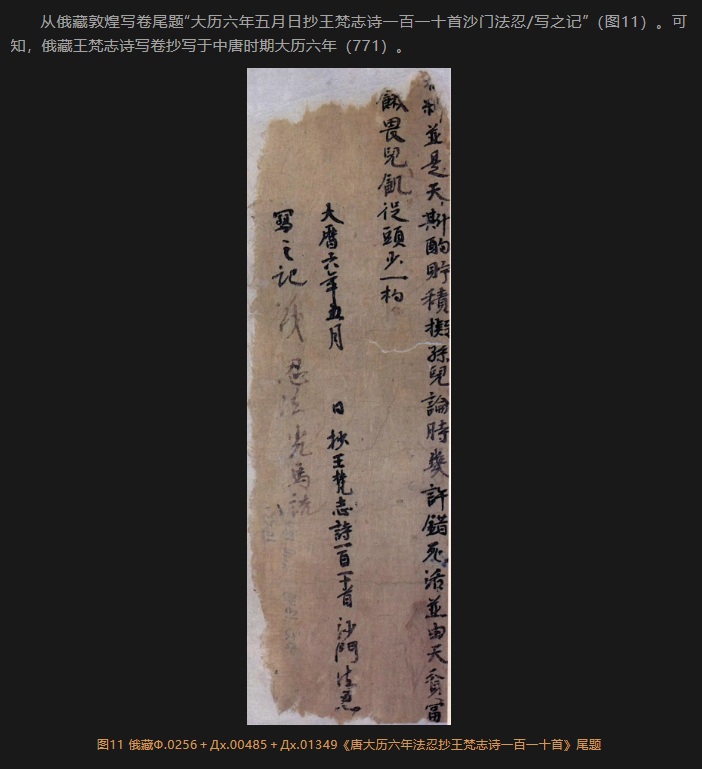 从俄藏敦煌写卷尾题“大历六年五月日抄王梵志诗一百一十首沙门法忍/写之记”（图11）。可
知，俄藏王梵志诗写卷抄写于中唐时期大历六年（771）。
制並是天斟酌貯積擬孫兒論時幾許錯死活並由天貧富
餓畏兒飢從頭少一杓
大曆六年五月 日抄王梵志詩一百一十首沙門法忍
寫之記
忍法光馬説
图11 俄藏Ф.0256＋Дх.00485＋Дх.01349《唐大历六年法忍抄王梵志诗一百一十首》尾题